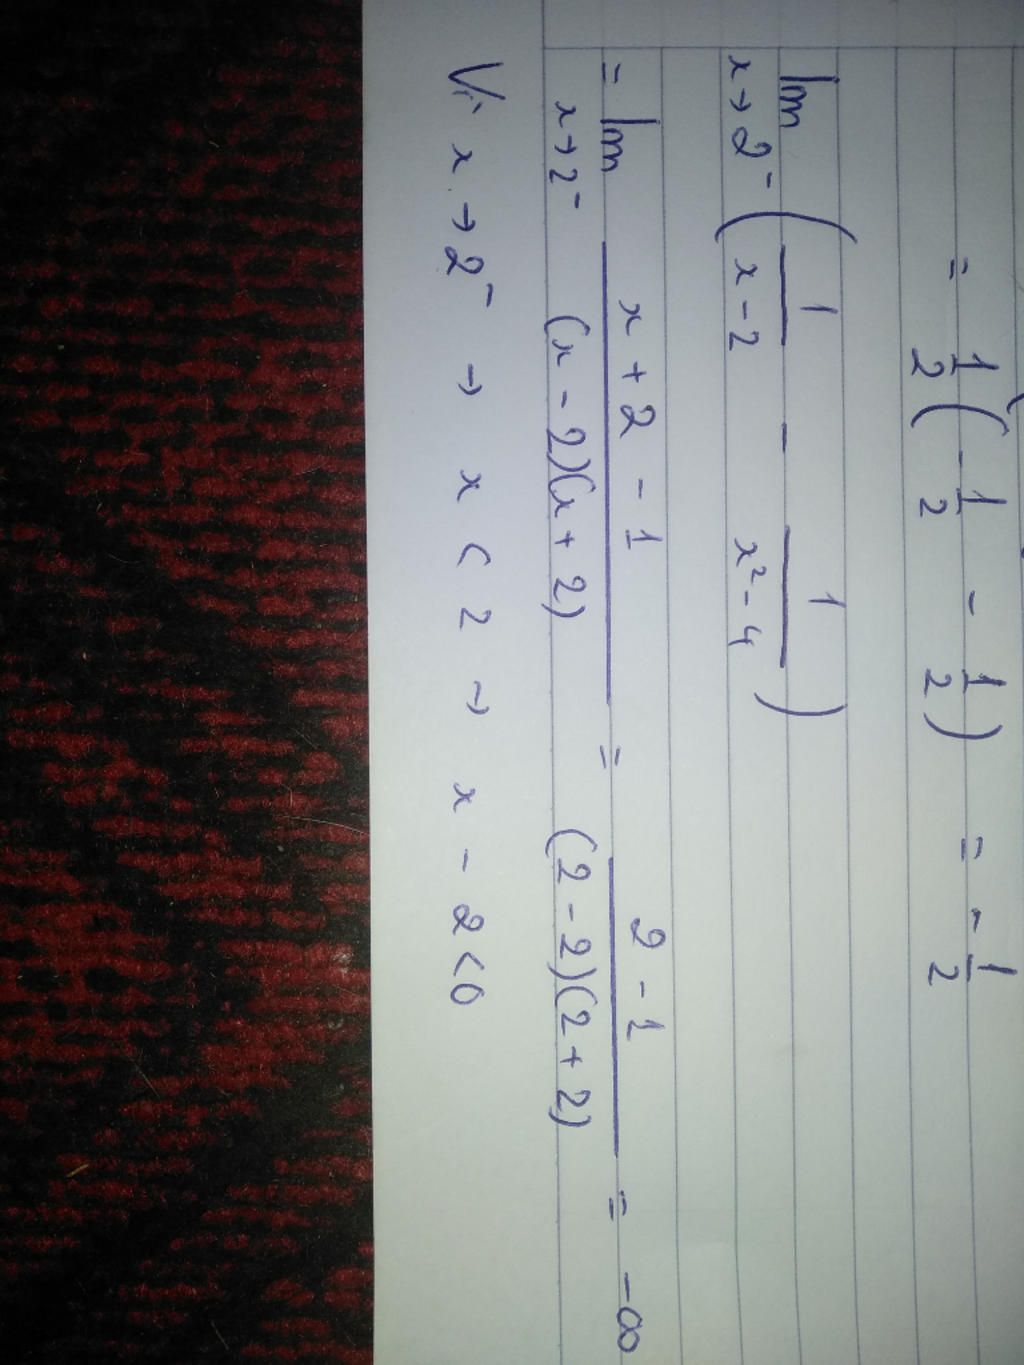 = 1/2 ( - 1/2 - 1/2 ) = - 1/2
lim x→2⁻ ( 1/(x-2) - 1/(x²-4) )
= lim x→2⁻ (x + 2 - 1)/((x - 2)(x + 2)) = (2 - 1)/((2 - 2)(2 + 2)) = -∞
Vì x → 2⁻ → x < 2 → x - 2 < 0